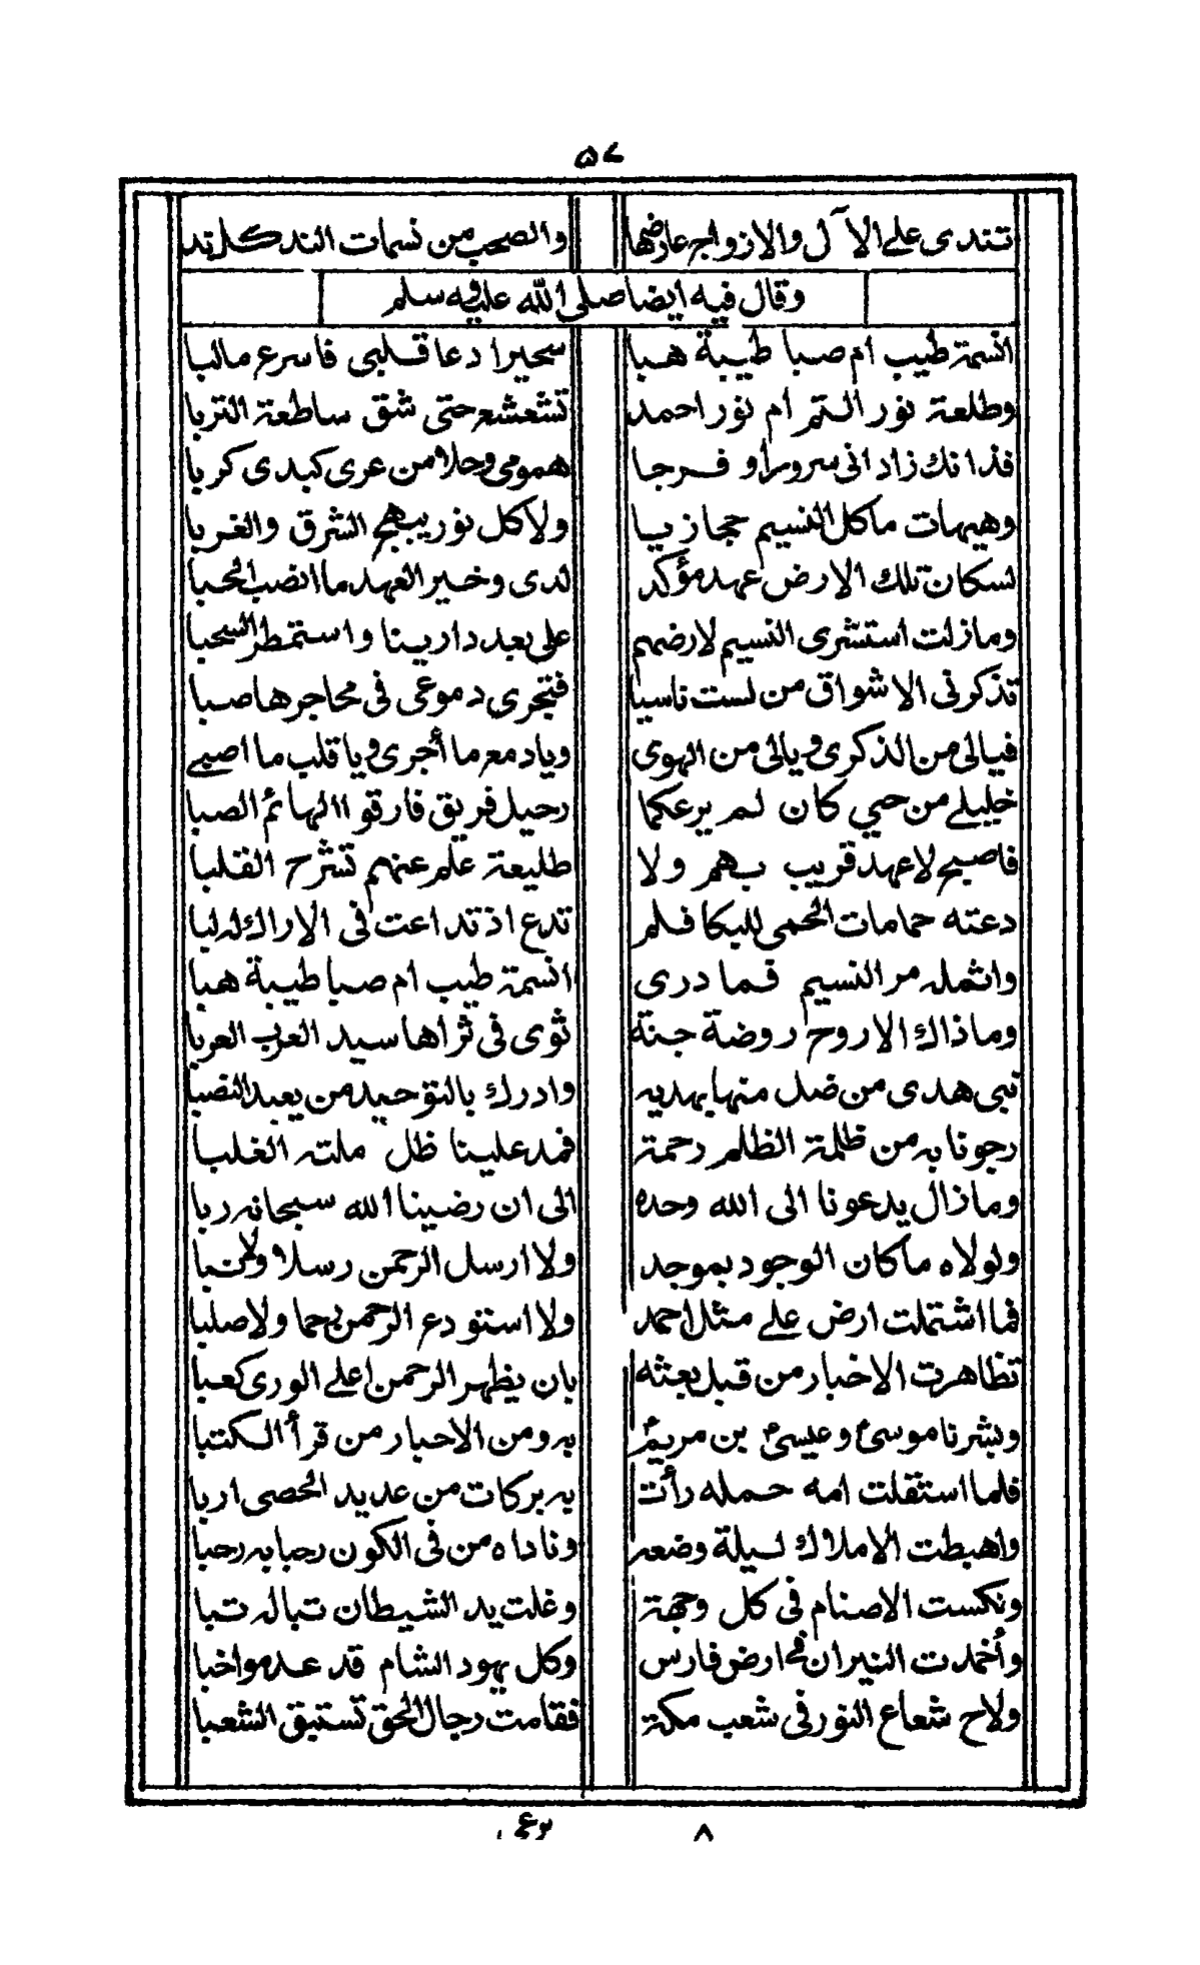 ٥٧
تندى على الآل والازواج عارضها والصحب من نسمات الند كل ند
وقال فيه ايضا صلى الله عليه وسلم
انسمة طيب ام صبا طيبة هبا سحيرا دعا قلبي فاسرع مالبا
وطلعة نور التم ام نور احمد تشعشع حتى شق ساطعة التربا
فذانك زادانى سرورا و فرجا همومى وحلا من عرى كبدى كربا
وهيهات ماكل النسيم حجازيا ولا كل نور يبهج الشرق والغربا
لسكان تلك الارض عهد مؤكد لدى وخير العهد ما انضب الحبا
ومازلت استشرى النسيم لارضهم على بعد دارينا واستمطر السحبا
تذكرنى الاشواق من لست ناسيا فتجرى دموعى فى محاجرها صبا
فيالى من الذكرى ويالى من الهوى ويادمع ما أجرى ويا قلب ما اصبى
خليلى من حيي كان لم يرعكما رحيل فريق فارقوا الهائم الصبا
فاصبح لاعهد قريب بهم ولا طليعة علم عنهم تشرح القلبا
دعته حمامات الحمى للبكا فلم تدع اذ تداعت فى الاراك له لبا
واثمله مر النسيم فما درى انسمة طيب ام صبا طيبة هبا
وماذاك الا روح روضة جنة ثوى فى ثراها سيد العرب العربا
نبى هدى من ضل منها بهديه وادرك بالتوحيد من يعبد النصبا
رجونا به من ظلمة الظلم رحمة فمد علينا ظل ملته الغلبا
ومازال يدعونا الى الله وحده الى ان رضينا الله سبحانه ربا
ولولاه ماكان الوجود بموجد ولا ارسل الرحمن رسلا ولا نبا
فما اشتملت ارض على مثل احمد ولا استودع الرحمن رحما ولا صلبا
تظاهرت الاخبار من قبل بعثه بان يظهر الرحمن اعلى الورى كعبا
وبشرنا موسى وعيسى بن مريم به ومن الاحبار من قرأ الكتبا
فلما استقلت امه حمله رأت به بركات من عديد الحصى اربا
واهبطت الاملاك ليلة وضعه وناداه من فى الكون رحبا به رحبا
ونكست الاصنام فى كل وجهة وغلت يد الشيطان تبا له تبا
وأخمدت النيران فى ارض فارس وكل يهود الشام قد عدموا خبا
ولاح شعاع النور فى شعب مكة فقامت رجال الحق تستبق الشعبا
٨